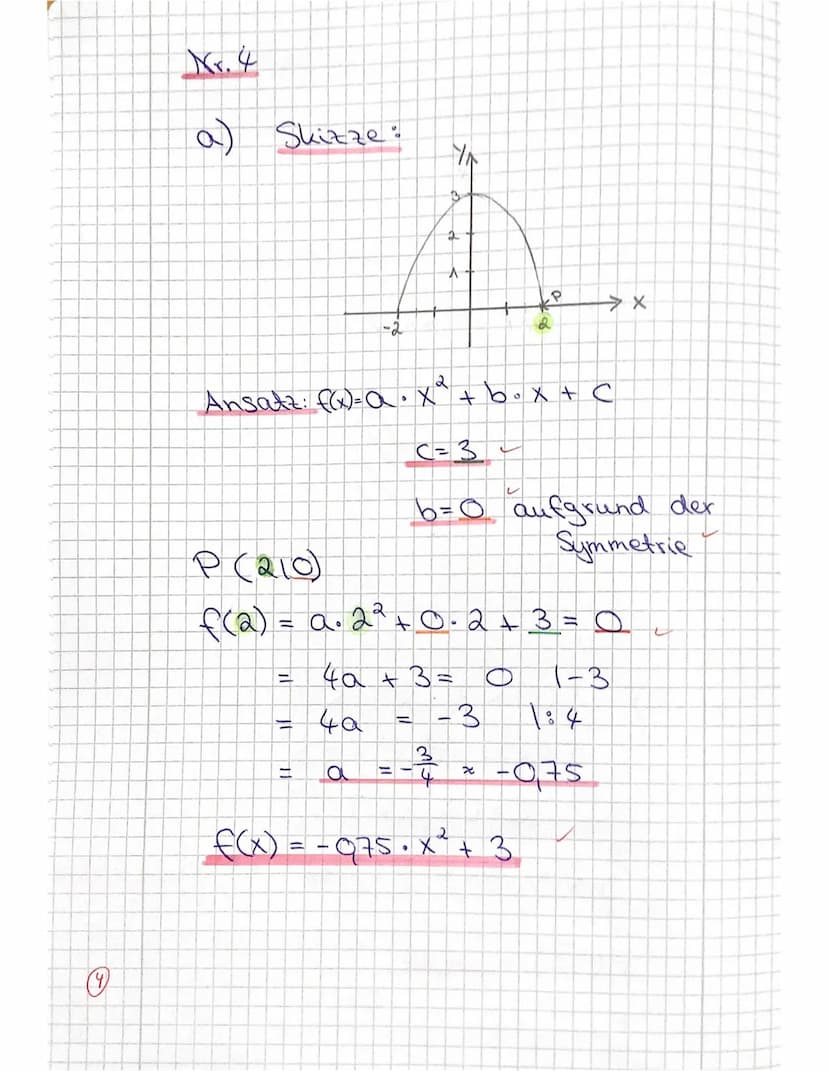 Nr. 4
a) Skizze:
y
3
2
1
P
x
-2
2
Ansatz: f(x)=a · x² + b · x + c
c=3 ✓
b=0 ✓ aufgrund der
Symmetrie ✓
P (2|0)
f(2) = a · 2² + 0 · 2 + 3 = 0 ✓
= 4a + 3 = 0 |-3
= 4a = -3 |:4
= a = -3/4 ≈ -0,75
f(x) = -0,75 · x² + 3 ✓
4